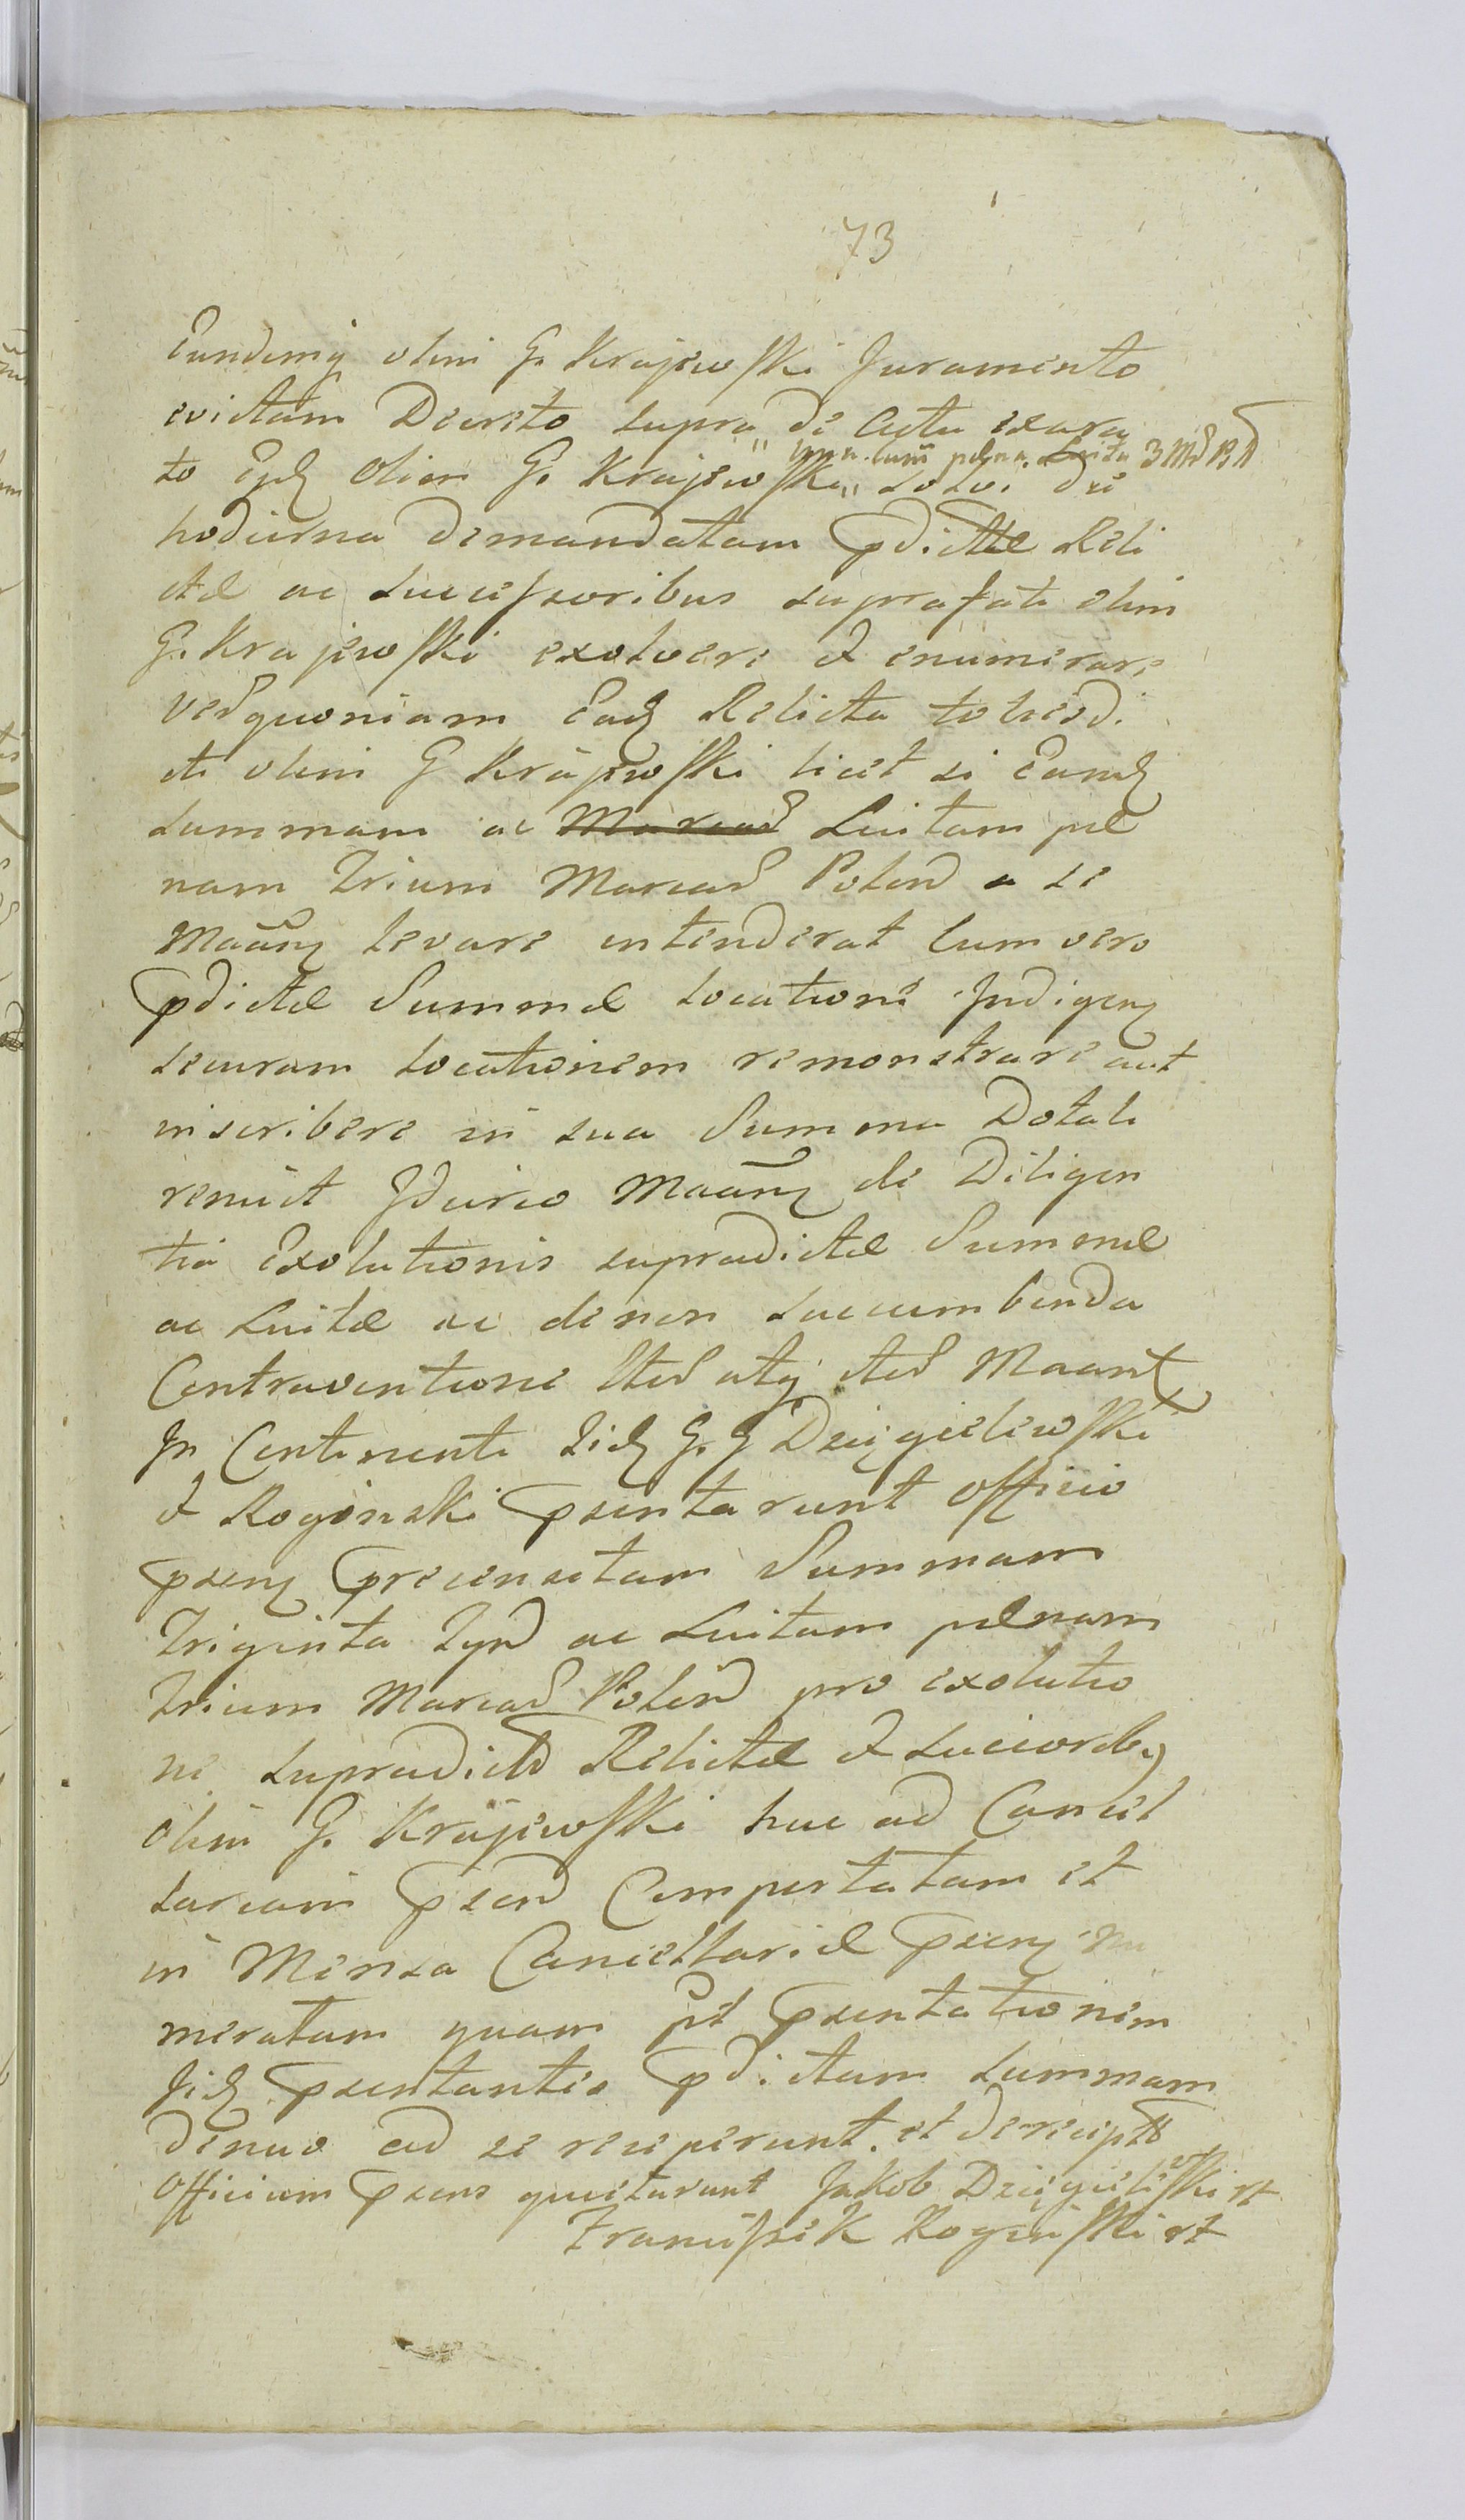 73
Eundemq olim G. Krajewski Juramento
evictam Decreto supra de Actu exara
to Ejd Olim G. Krajewski " solvi die
una cum pæna Luita 3 Mar Pol
hodierna demandatam pdictæ Reli
ctæ ac Successoribus suprafati olim
G. Krajewski exolvere et enumerare
verquoniam Ead Relicta tohesdi
cti olim G Krajewski licet si Eamd
summam ac Marcar Luitam pæ
nam Trium Marcar Polon a se
Maanz levare intenderat tum vero
pdictæ Summæ locatione Indigen
securam locationem remonstrare aut
inscribere in sua Summa Dotali
renuit Idcirco Maanz de Diligen
tia Exolutionis supradictæ Summæ
ac Luitæ ac de non succumbenda
Contraventione lter atq cter Maant
In Continenti Iid G. G Dzięgielewski
et Rogiński psentarunt Officio
psenz precensitam Summam
Triginta Tynf ac Luitam pænam
trium Marcar Polon pro exolutio
ne supradictæ Relictæ et Succiorib9
Olim G. Krajewski huc ad Cancel
lariam psen Comportatam et
in Mensa Cancellariæ psenz nu
meratam quam pt psentationem
Iid psentantes pdictam summam
denuo ad se receperunt. et de receptis
Officium psens quietarunt Jakob Dzięgielewski rt
Franciszek Rogiński rt